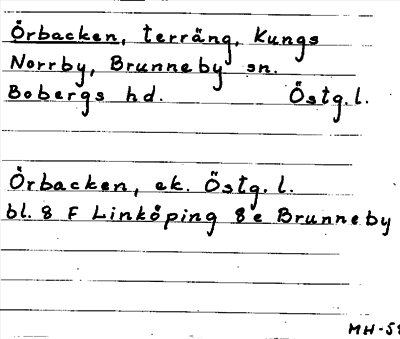 Örbacken, terräng, Kungs
Norrby, Brunneby sn.
Bobergs hd. Östg.l.
Örbacken, ek. Östg.l.
bl. 8 F Linköping 8e Brunneby